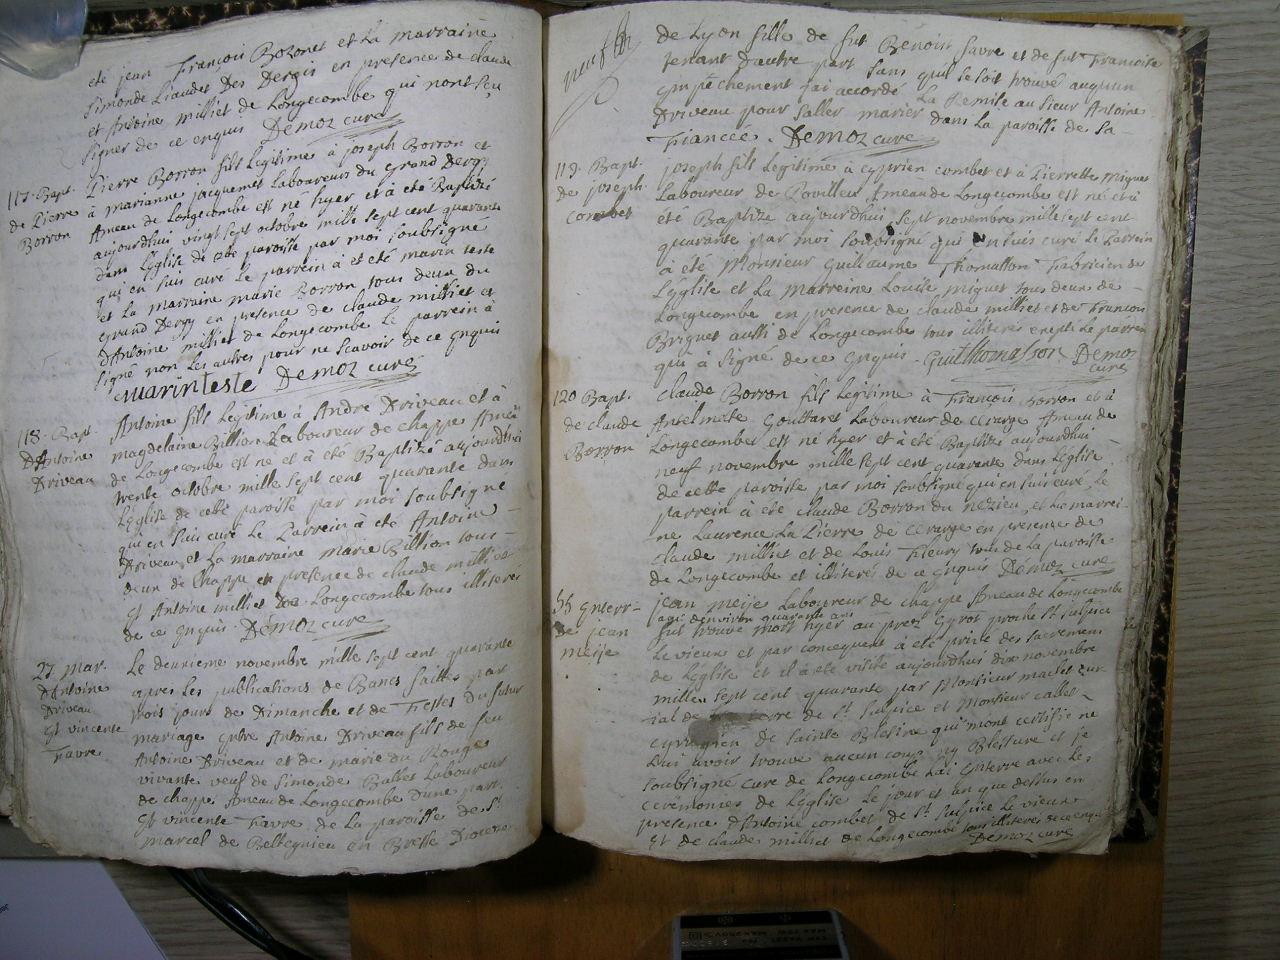 eté jean François Bozonet et La marraine
Simonde Liaudet Des Dergis en presence de claude
et Antoine milliet de Longecombe qui nont sçu
signer de ce enquis Demoz curé
117. Bapt.
de Pierre
Borron
Pierre Borron fils Legitime à joseph Borron et
à marianne jacquemet Laboureurs du Grand Dergy
Ameau de Longecombe est né hyer et à eté Baptizé
aujourdhui vingt sept octobre mille sept cent quarante
dans Léglise de cete paroisse par moi soubsigné
qui en suis curé Le parrein à eté marin teste
et La marraine marie Borron tous deux du
Grand Dergy en presence de claude milliet et
dAntoine milliet de Longecombe Le parrein à
signé non Les autres pour ne scavoir de ce enquis
marin teste Demoz curé
118. Bapt.
DAntoine
Driveau
Antoine fils Legitime à André Driveau et à
magdelaine Billion Laboureur de chappe Ameau
de Longecombe est né et à été Baptizé aujourdhui
trente octobre mille sept cent quarante dans
Léglise de cete paroisse par moi soubsigné
qui en suis curé Le Parrein à eté Antoine
Driveau et La marraine marie Billion tous
deux de chappe en presence de claude milliet
et Antoine milliet de Longecombe tous illiterés
de ce enquis Demoz curé
27 mar.
DAntoine
Driveau
et vincente
Favre
Le deuxieme novembre mille sept cent quarante
apres Les publications de Bancs faittes par
trois jours de Dimanche et de Festes du futur
mariage entre Antoine Driveau fils de feu
Antoine Driveau et de marie du Rouge
vivante veuf de Simonde Ballet Laboureur
de chappe Ameau de Longecombe dune part.
et vincente Favre de La paroisse de St
marcel de en Bresse Diocese
de Lyon fille de fut Benoit favre et de fut Francoise
tenant Dautre part sans quil se soit trouvé auqun
empechement jai accordé La Remise au Sieur Antoine
Driveau pour Saller marier dans La paroisse de Sa
Fiancée. Demoz curé
119. Bapt.
de joseph
Combet
joseph fils Legitime à cyprien combet et à Pierrette miguet
Laboureur de Ameau de Longecombe est né et à
eté Baptizé aujourdhui sept novembre mille sept cent
quarante par moi soubsigné qui en suis curé Le Parrein
à été Monsieur Guillaume Thomasson Fabricien de
Leglise et La marreine Louise miguet tous deux de
Longecombe en presence de claude milliet et de Francois
Briguet aussi de Longecombe tous illiterés exepté Le parrein
qui à signé de ce enquis. Guil thomasson Demoz
curé
120 Bapt.
de claude
Borron
claude Borron fils Legitime à François Borron et à
Anselmete Gouttaret Laboureur de Ameau de
Longecombe est né hyer et à eté Baptizé aujourdhui
neuf novembre mille sept cent quarante dans Léglise
de cette paroisse par moi soubsigné qui en suis curé Le
parrein à eté claude Borron du nezieu et La marrei-
ne Laurence La Pierre de en presence de
claude milliet et de Louis Fleury tous de La paroisse
de Longecombe et illiterés de ce enquis Demoz curé
55 enterr-
de jean
meije
jean meije Laboureur de chappe Ameau de Longecombe
agé denviron quarante ans
fut trouvé mort hyer au prez Gyrot proche St Sulpice
Le vieux et par concequent à eté privé des sacremens
de Léglise et il à eté visité aujourdhui dix novembre
mille sept cent quarante par Monsieur
de St Sulpice et Monsieur callet
cyrurgien de Sainte Blesine qui mont certifié ne
Lui avoir trouvé aucun coup ny Blessure et je
soubsigné curé de Longecombe Lai enterré avec Les
ceremonies de Léglise Le jour et an que dessus en
presence dAntoine combet de St Sulpice Le vieux
et de claude milliet de Longecombe tous illiterés de ce enquis
Demoz curé